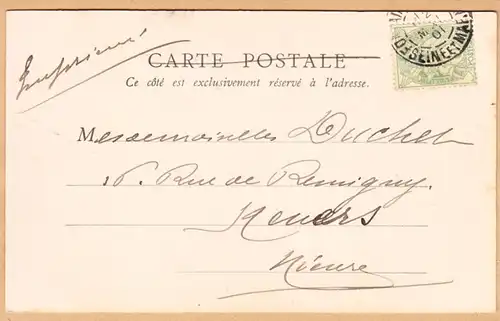 Imprimé
CARTE POSTALE
Ce côté est exclusivement réservé à l'adresse.
Messemoiselles Duchet
16 Rue de Remigny.
Nevers
Nièvre
01
SEINE ET MAR